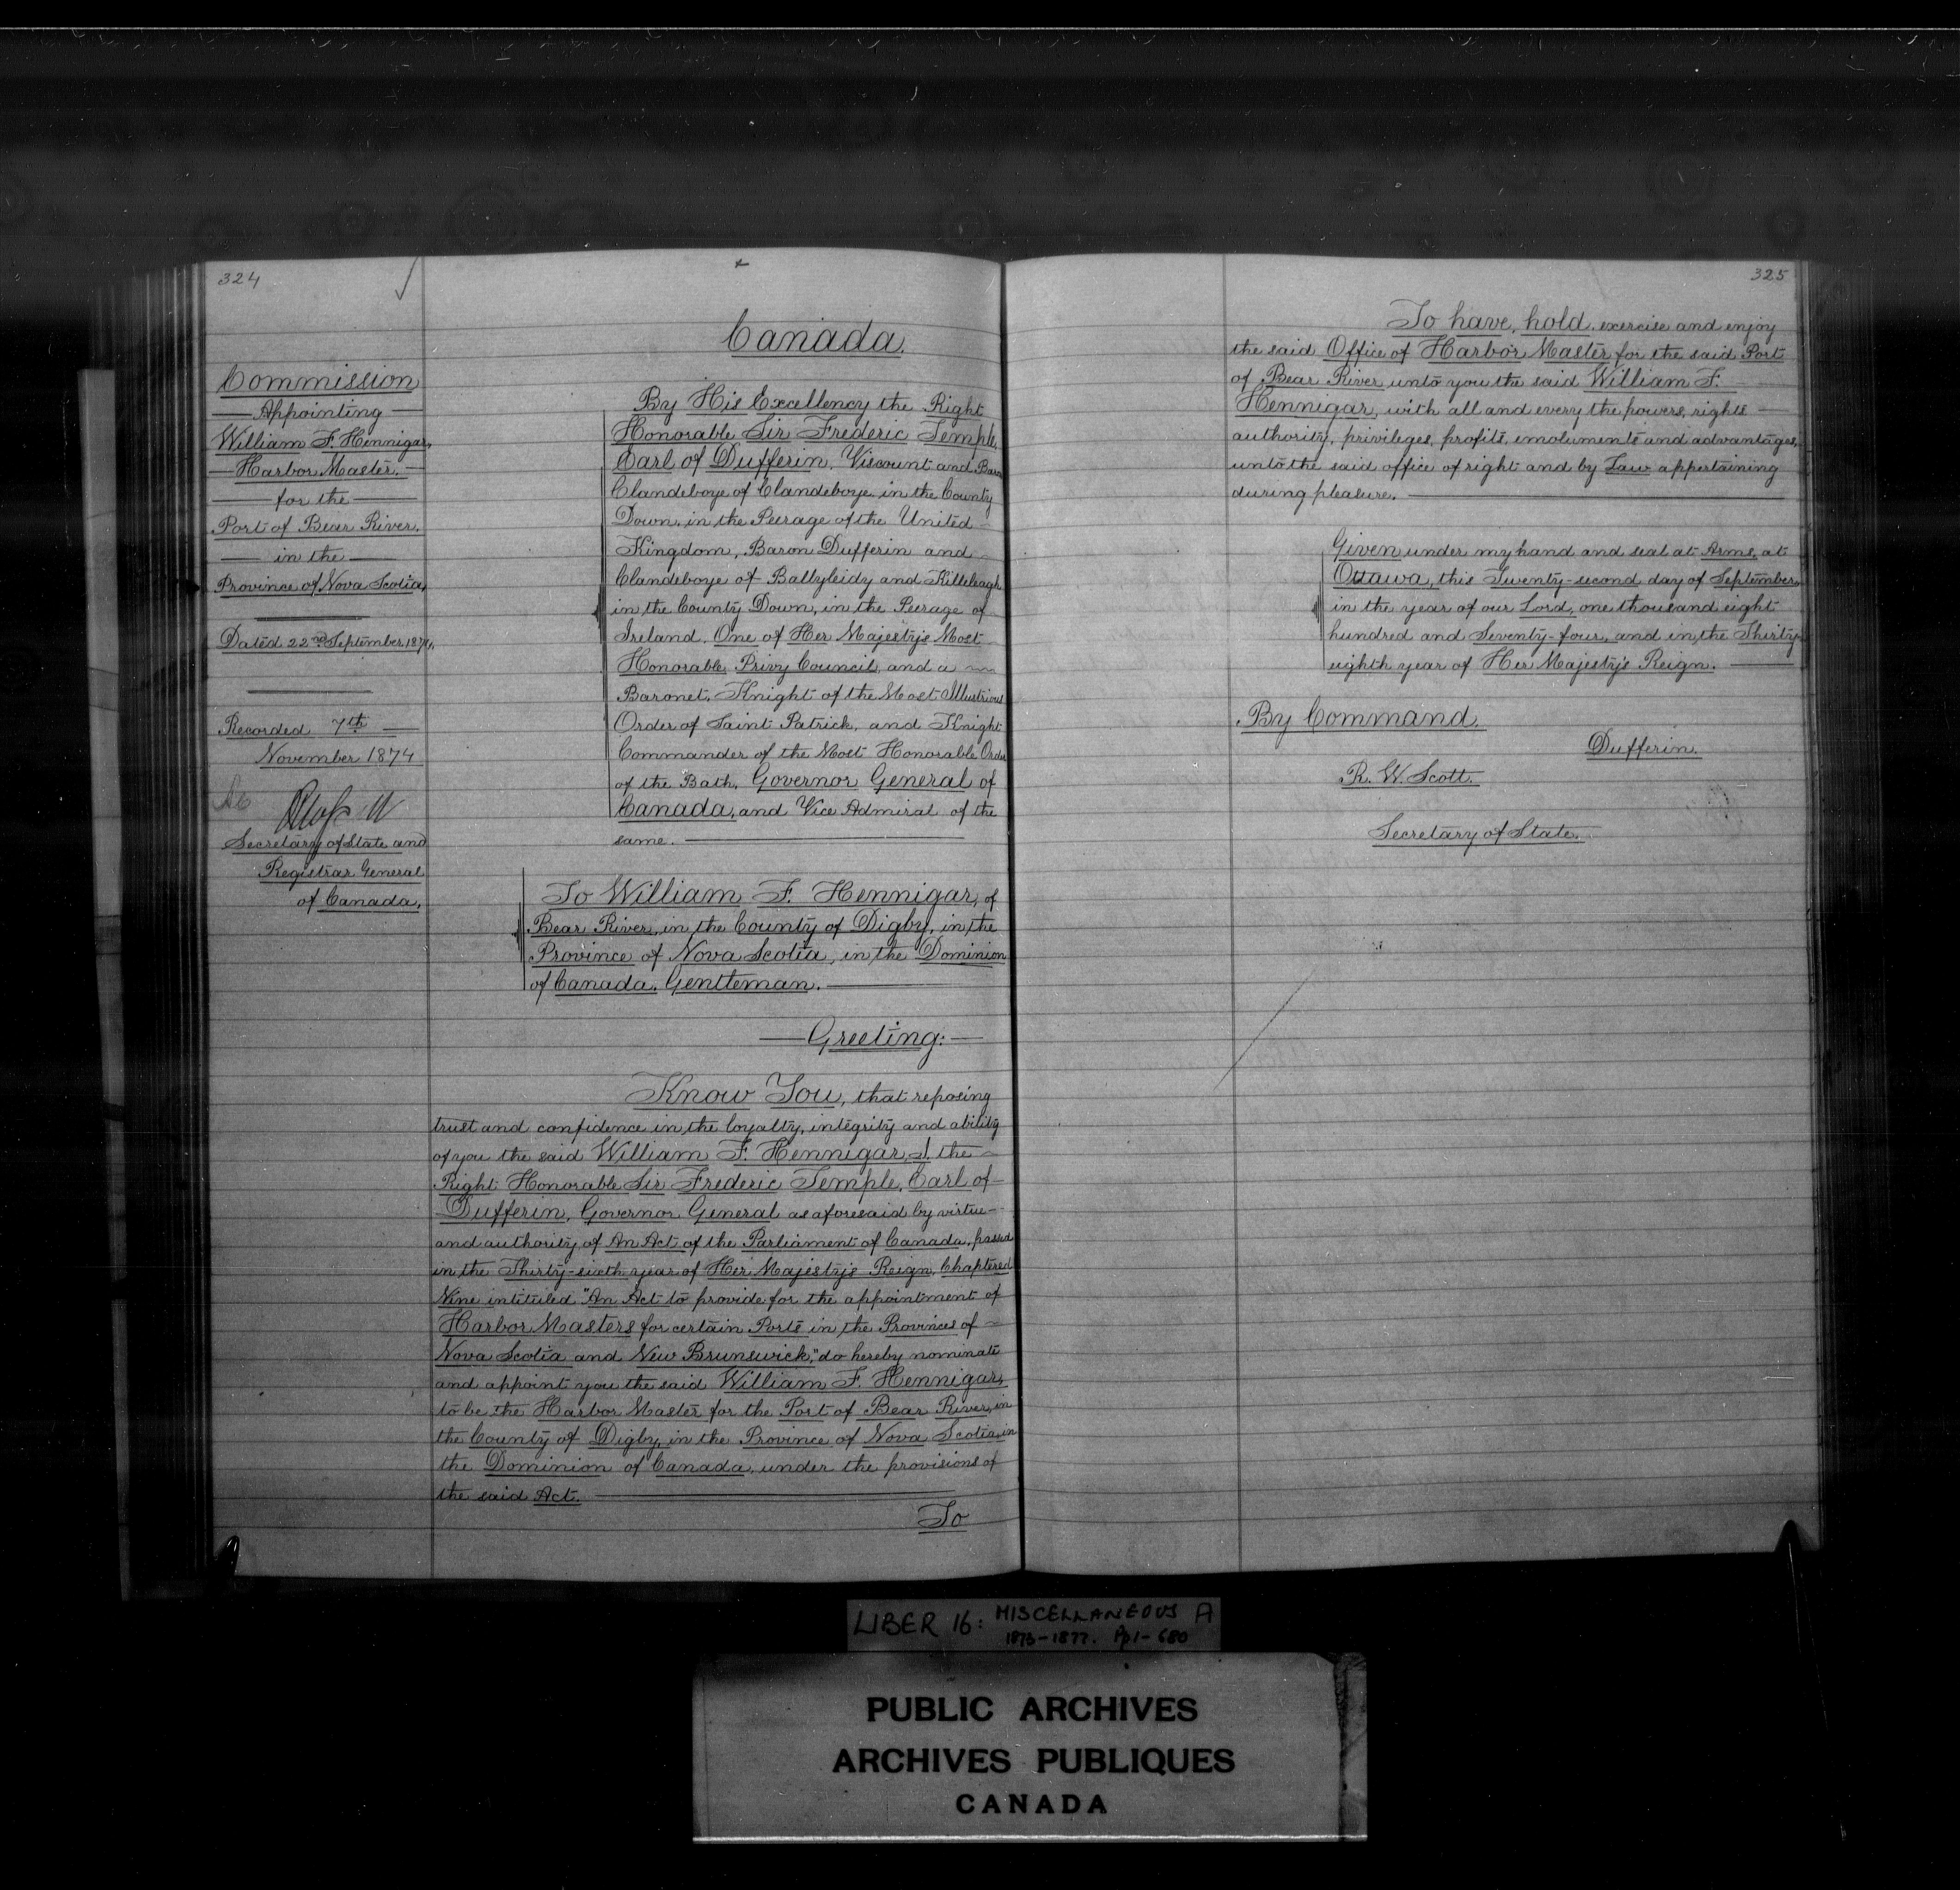 324
Commission
Appointing
William F. Hennigar,
Harbor Master,
for the
Port of Bear River,
in the
Province of Nova Scotia,
Dated 22nd September 1874,
Recorded 7th
November 1874
Secretary of State and
Registrar General
of Canada,
Canada.
By His Excellency the Right
Honorable Sir Frederic Temple,
Earl of Dufferin, Viscount and Baron
Clandeboye of Clandeboye in the County
Down, in the Peerage of the United
Kingdom, Baron Dufferin and
Clandeboye of Ballyleidy and Killeleagh
in the County Down, in the Peerage of
Ireland, One of Her Majesty's Most
Honorable Privy Council, and a
Baronet, Knight of the Most Illustrious
Order of Saint Patrick, and Knight
Commander of the Most Honorable Order
of the Bath, Governor General of
Canada, and Vice Admiral of the
same.
To William F. Hennigar, of
Bear River, in the County of Digby, in the
Province of Nova Scotia, in the Dominion
of Canada, Gentleman.
Greeting:
Know You, that reposing
trust and confidence in the loyalty, integrity and ability
of you the said William F. Hennigar, I, the
Right Honorable Sir Frederic Temple, Earl of
Dufferin, Governor General as aforesaid by virtue
and authority of An Act of the Parliament of Canada, passed
in the Thirty-sixth year of Her Majesty's Reign, Chaptered
Nine intituled "An Act to provide for the appointment of
Harbor Masters for certain Ports in the Provinces of
Nova Scotia and New Brunswick," do hereby nominate
and appoint you the said William F. Hennigar,
to be the Harbor Master for the Port of Bear River, in
the County of Digby, in the Province of Nova Scotia, in
the Dominion of Canada, under the provisions of
the said Act.
To
325
To have, hold, exercise and enjoy
the said Office of Harbor Master for the said Port
of Bear River unto you the said William F.
Hennigar, with all and every the powers, rights
authority, privileges, profits, emoluments and advantages,
unto the said office of right and by Law appertaining
during pleasure.
Given under my hand and seal at Arms, at
Ottawa, this Twenty-second day of September,
in the year of our Lord, one thousand eight
hundred and Seventy-four, and in the Thirty-
eighth year of Her Majesty's Reign.
By Command.
Dufferin.
R. W. Scott.
Secretary of State.
LIBER 16: MISCELLANEOUS A
1873-1877. Pp 1-680
PUBLIC ARCHIVES
ARCHIVES PUBLIQUES
CANADA